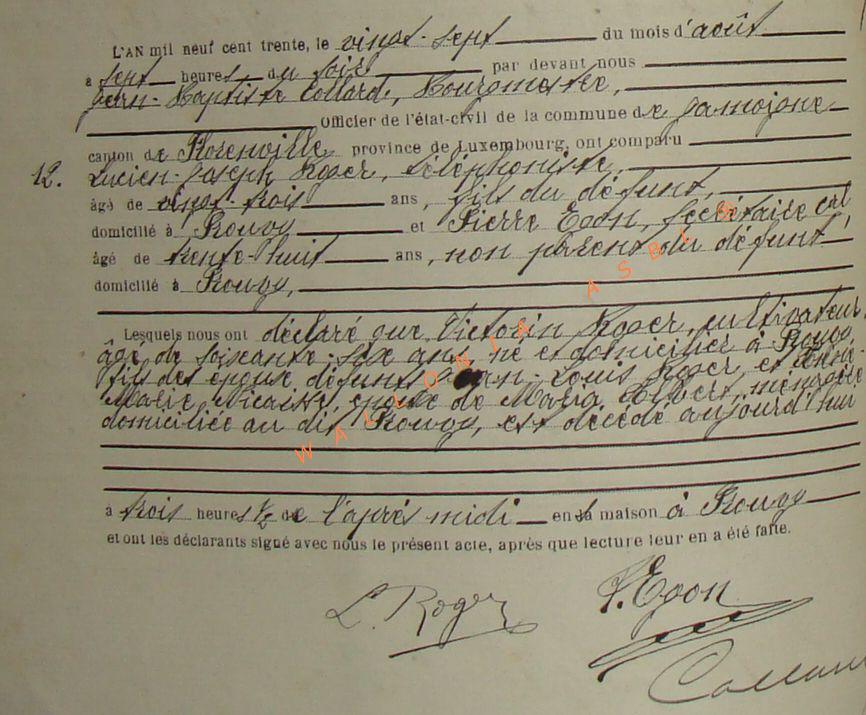 L'AN mil neuf cent trente, le vingt-sept du mois d'août
à sept heures du soir par devant nous
Jean-Baptiste Collard, Bourgmestre,
Officier de l'état-civil de la commune de Jamoigne
canton de Florenville province de Luxembourg, ont comparu
12. Lucien-Joseph Roger, téléphoniste,
âgé de vingt-trois ans, fils du défunt,
domicilié à Prouvy et Pierre Egon, secrétaire cal
âgé de trente-huit ans, non parent du défunt
domicilié à Prouvy,
Lesquels nous ont déclaré que Victorin Roger, cultivateur,
âgé de soixante-six ans, né et domicilié à Prouvy,
fils des époux défunts Jean-Louis Roger, et
Marie Nicaise, époux de Maria Gilbert, ménagère
domiciliée au dit Prouvy, est décédé aujourd'hui
à trois heures ½ de l'après midi en sa maison à Prouvy
et ont les déclarants signé avec nous le présent acte, après que lecture leur en a été faite.
L. Roger P. Egon
Collard
WALLONIA ASBL